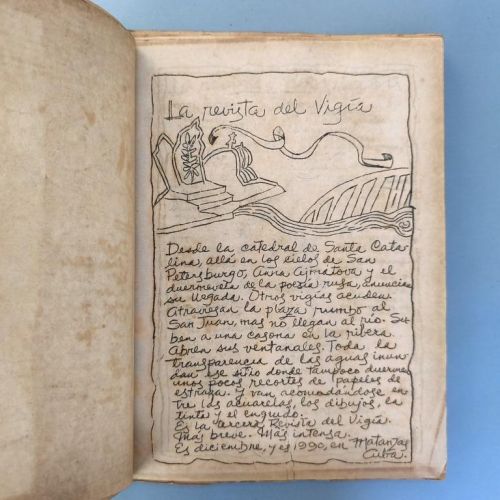 La revista del Vigía
Desde la catedral de Santa Cata-
lina, allá en los cielos de San
Petersburgo, Anna Ajmatova y el
duermevela de la poesía rusa, anuncian
su llegada. Otros vigías acuden
Atraviesan la plaza rumbo al
San Juan, mas no llegan al río. Su-
ben a una casona en la ribera.
Abren sus ventanales. Toda la
transparencia de las aguas inun-
dan ese sitio donde tampoco duermen
unos pocos recortes de papeles de
estraza. Y van acomodándose en-
tre las acuarelas, los dibujos, la
tinta y el engrudo.
Es la tercera Revista del Vigía.
Más breve. Más intensa.
Es diciembre, y es 1990, en Matanzas
Cuba.